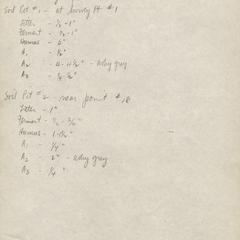 Soil Pit #1 - at Survey Pt #1
Litter - ½-1"
Ferment - ½-1"
Humus - 2"
A₁ -
A₂ - 4-4½" - ashy grey
A₃ -
Soil Pit #2 - near point #10
Litter - 1"
Ferment - ½-¾"
Humus - 1-1½"
A₁ - ¼"
A₂ - 2" - ashy grey
A₃ - ¼"